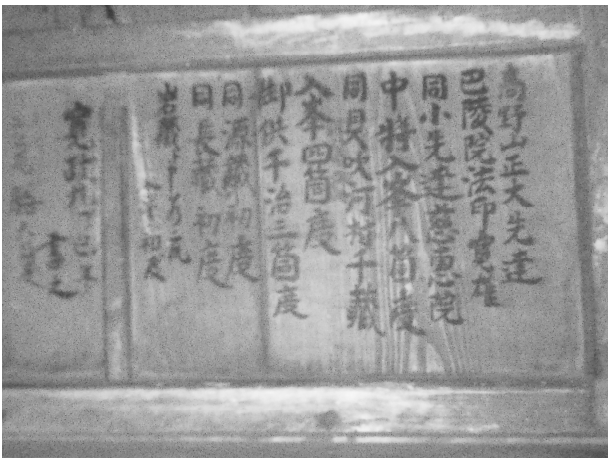 高野山正大先達
巴陵院法印寛雄
同小先達慈恩院
中將入峯八箇度
同貝吹河村千藏
入峯四箇度
御供千治三箇度
同源藏初度
同長藏初度
岩藏
入峯初度
寛政九
書之